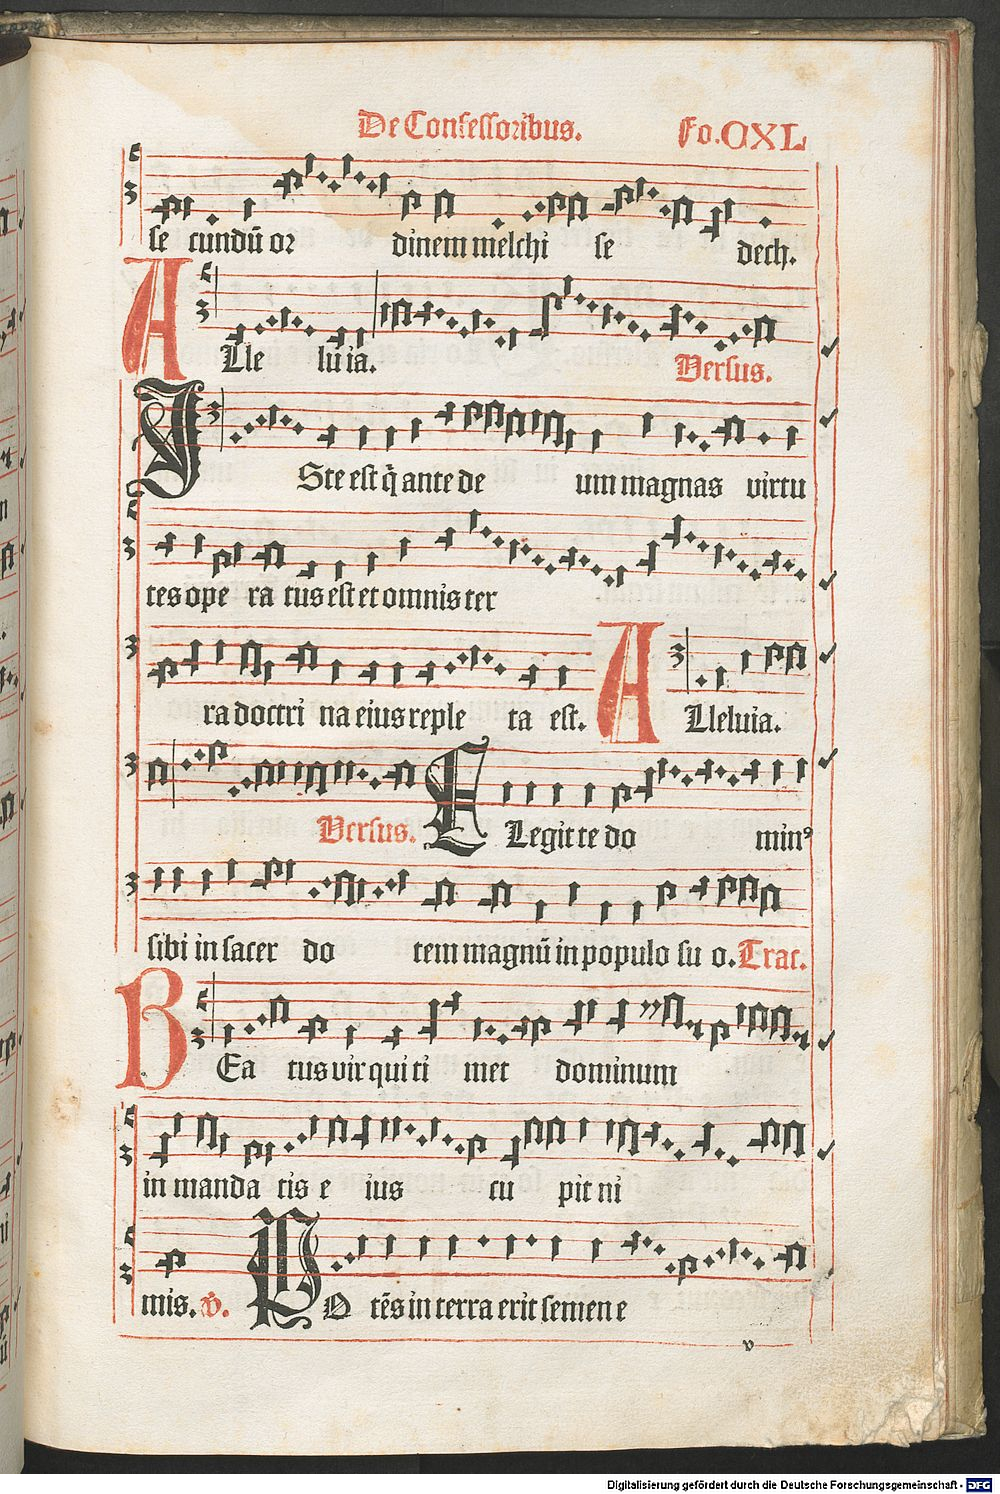 De Confessoribus. Fo. CXL
se cundū or dinem melchi se dech.
ALle luia. Versus.
ISte est q̄ ante de um magnas virtu
tes ope ra tus est et omnis ter
ra doctri na eius reple ta est. ALleluia.
Versus. ELegit te do minꝰ
sibi in sacer do tem magnū in populo su o. Trac.
BEa tus vir qui ti met dominum
in manda tis e ius cu pit ni
mis. ꝟ. PO tēs in terra erit semen e
v
Digitalisierung gefördert durch die Deutsche Forschungsgemeinschaft - DFG